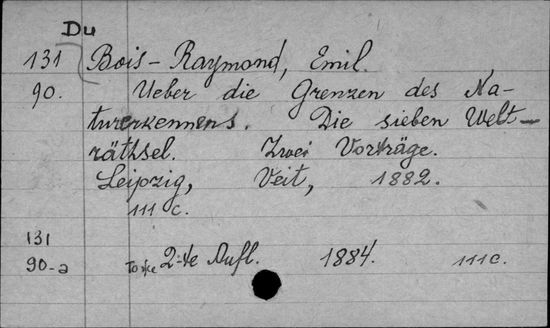 Du
131 Bois-Raymond, Emil.
90. Ueber die Grenzen des Na-
turerkennens. Die sieben Welt-
räthsel. Zwei Vorträge.
Leipzig, Veit, 1882.
111 c.
131
90-a То же 2-te Aufl. 1884. 111 c.